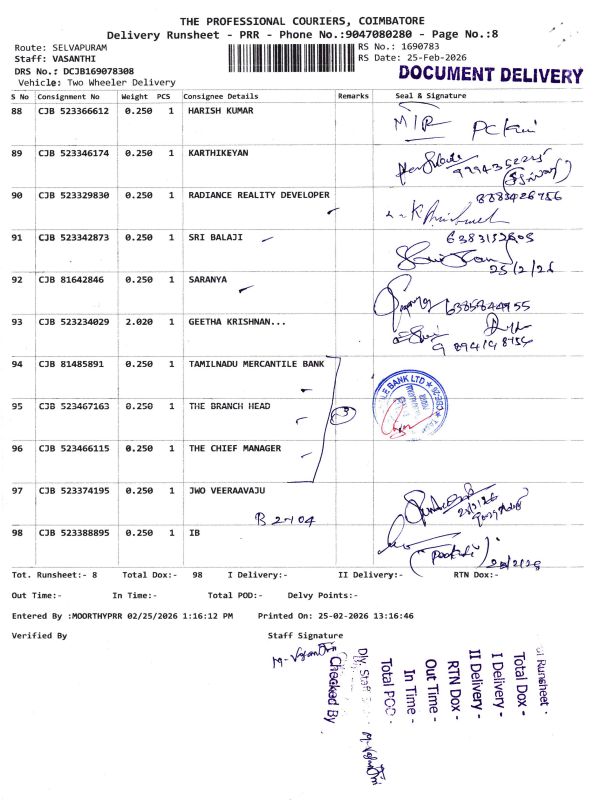 THE PROFESSIONAL COURIERS, COIMBATORE
Delivery Runsheet - PRR - Phone No.:9047080280 - Page No.:8
Route: SELVAPURAM RS No.: 1690783
Staff: VASANTHI RS Date: 25-Feb-2026
DRS No.: DCJB169078308 DOCUMENT DELIVERY
Vehicle: Two Wheeler Delivery
S No Consignment No Weight PCS Consignee Details Remarks Seal & Signature
88 CJB 523366612 0.250 1 HARISH KUMAR
89 CJB 523346174 0.250 1 KARTHIKEYAN
90 CJB 523329830 0.250 1 RADIANCE REALITY DEVELOPER
91 CJB 523342873 0.250 1 SRI BALAJI
25/2/26
92 CJB 81642846 0.250 1 SARANYA
93 CJB 523234029 2.020 1 GEETHA KRISHNAN...
94 CJB 81485891 0.250 1 TAMILNADU MERCANTILE BANK
95 CJB 523467163 0.250 1 THE BRANCH HEAD 3
96 CJB 523466115 0.250 1 THE CHIEF MANAGER
97 CJB 523374195 0.250 1 JWO VEERAAVAJU
98 CJB 523388895 0.250 1 IB
Tot. Runsheet:- 8 Total Dox:- 98 I Delivery:- II Delivery:- RTN Dox:-
Out Time:- In Time:- Total POD:- Delvy Points:-
Entered By :MOORTHYPRR 02/25/2026 1:16:12 PM Printed On: 25-02-2026 13:16:46
Verified By Staff Signature
Runsheet -
Total Dox -
I Delivery -
II Delivery -
RTN Dox -
Out Time -
In Time -
Total POD -
Checked By